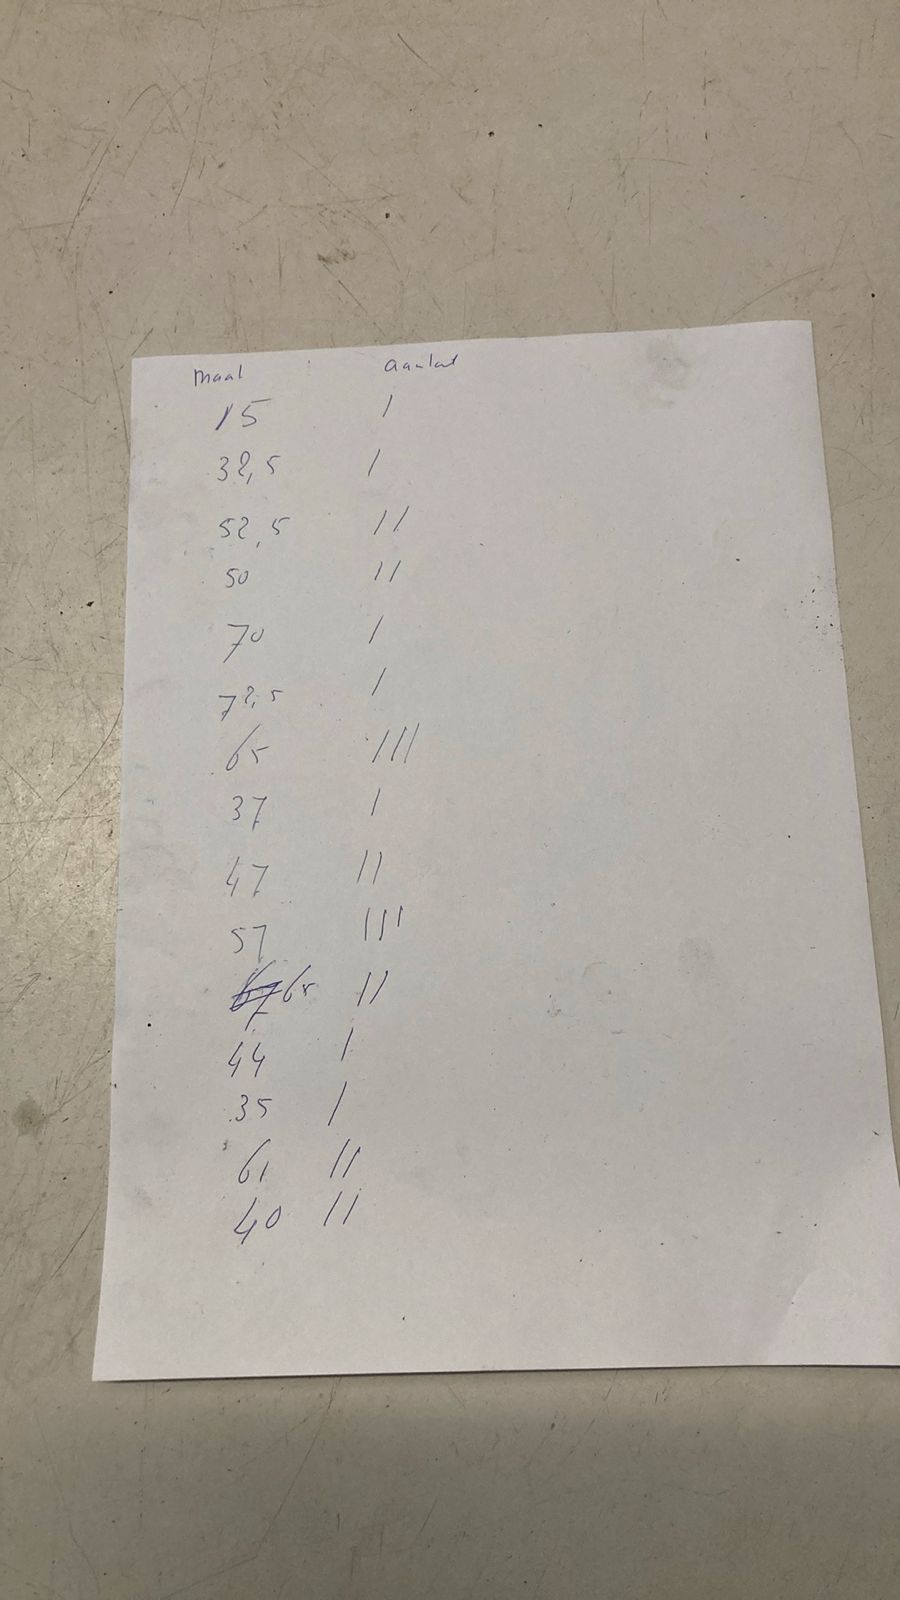 maat aantal
15 /
32,5 /
52,5 //
50 //
70 /
72,5 /
65 ///
37 /
47 //
57 ///
67 65 //
44 /
35 /
61 //
40 //